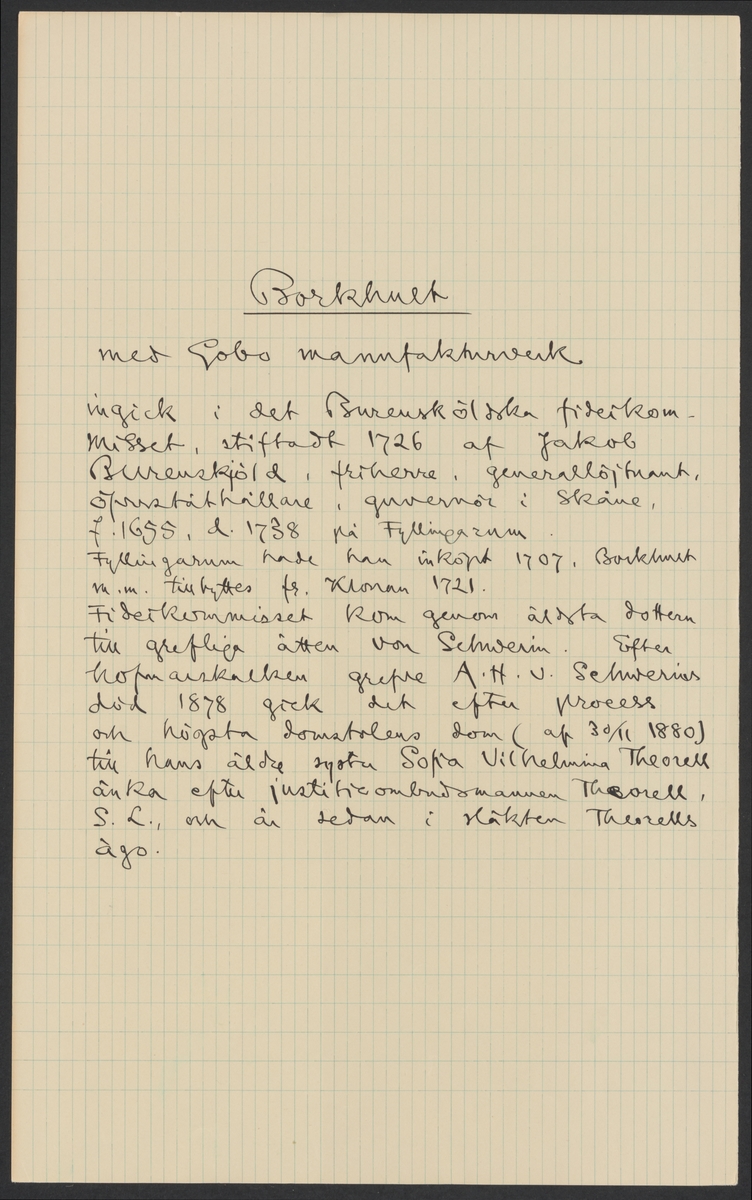 Borkhult
med Gobo manufakturverk
ingick i det Burensköldska fideikom-
misset, stiftadt 1726 af Jakob
Burenskjöld, friherre, generallöjtnant,
öfverståthållare, guvernör i Skåne,
f. 1655, d. 1738 på Fyllingarum.
Fyllingarum hade han inköpt 1707, Borkhult
m.m. tillbyttes fr. Kronan 1721.
Fideikommisset kom genom äldsta dottern
till grefliga ätten von Schwerin. Efter
hofmarskalken grefve A.H.v. Schwerins
död 1878 gick det efter process
och högsta domstolens dom (af 30/11 1880)
till hans äldre syster Sofia Vilhelmina Theorell
änka efter justitieombudsmannen Theorell,
S. L., och är sedan i släkten Theorells
ägo.